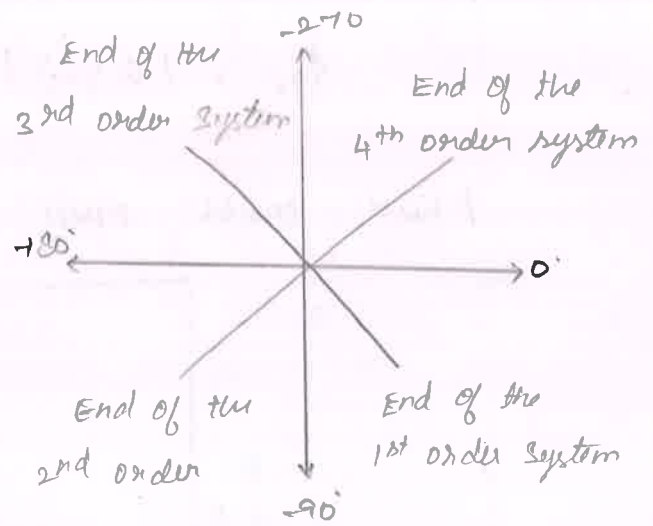 -270
End of the
3rd order System
End of the
4th order system
-180°
0°
End of the
2nd order
End of the
1st order System
-90°